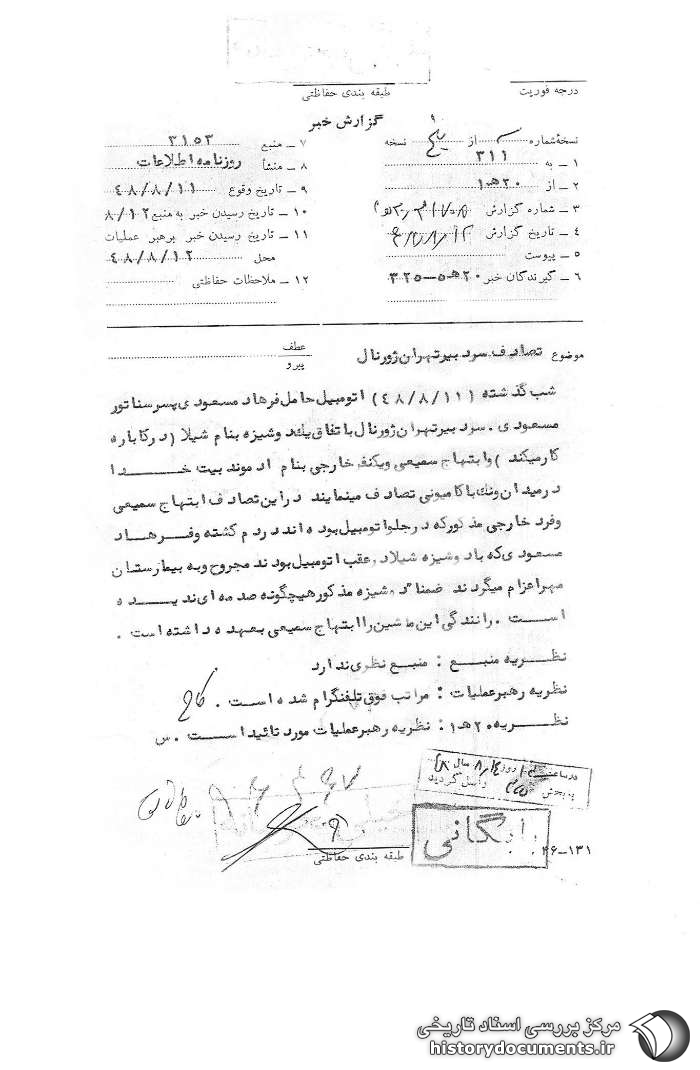 درجه فوریت
طبقه بندی حفاظتی
گزارش خبر
نسخه شماره از نسخه
۱ ــ به ۳۱۱
۲ ــ از ۲۰هـ۱
۳ ــ شماره گزارش
۴ ــ تاریخ گزارش
۵ ــ پیوست
۶ ــ گیرندگان خبر ۲۰هـ۵ــ۳۲۵
۷ ــ منبع ۳۱۵۳
۸ ــ منشأ روزنامه اطلاعات
۹ ــ تاریخ وقوع ۴۸/۸/۱۱
۱۰ ــ تاریخ رسیدن خبر به منبع ۸/۱۲
۱۱ ــ تاریخ رسیدن خبر برهبر عملیات
محل ۴۸/۸/۱۲
۱۲ ــ ملاحظات حفاظتی
موضوع تصادف سردبیر تهران ژورنال
عطف
پیرو
شب گذشته (۴۸/۸/۱۱) اتومبیل حامل فرهاد مسعودی پسر سناتور
مسعودی . سردبیر تهران ژورنال باتفاق یکدوشیزه بنام شیلا (در کاباره
کار میکند) وابتهاج سمیعی ویکنفر خارجی بنام ادموند بیت خدا
در میدان ونک با کامیونی تصادف مینمایند در این تصادف ابتهاج سمیعی
وفرد خارجی مذکور که در جلو اتومبیل بوده اند در دم کشته وفرهاد
مسعودی که با دوشیزه شیلا در عقب اتومبیل بودند مجروح وبه بیمارستان
مهر اعزام میگردند ضمنا" دوشیزه مذکور هیچگونه صدمه ای ندیده
است . رانندگی این ماشین را ابتهاج سمیعی بعهده داشته است .
نظریه منبع : منبع نظری ندارد
نظریه رهبر عملیات : مراتب فوق تلفنگرام شده است .
نظریه ۲۰هـ۱ : نظریه رهبر عملیات مورد تائید است . س
در ساعت روز سال
به بخش واصل گردید
بایگانی
طبقه بندی حفاظتی
۴۶-۱۳۱
مرکز بررسی اسناد تاریخی
historydocuments.ir